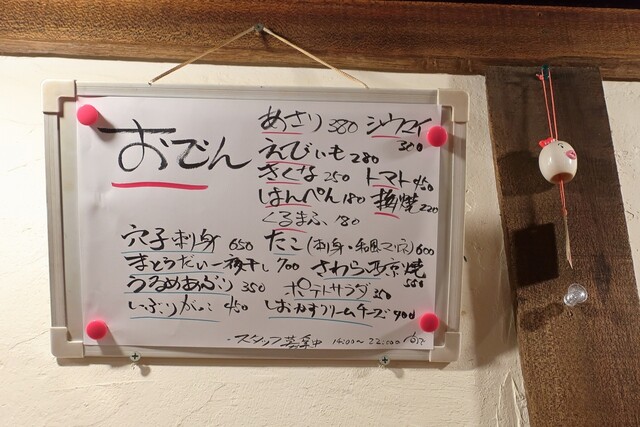 おでん
あさり 380 シウマイ 300
えびいも 280
きくな 250 トマト 450
はんぺん 180 梅焼 220
くるまふ 180
穴子刺身 650 たこ(刺身・和風マリネ) 600
まとうだい一夜干し 700 さわら西京焼 550
うるめあぶり 350 ポテトサラダ 350
いぶりがっこ 450 しおかすクリームチーズ 400
・スタッフ募集中 14:00〜22:00